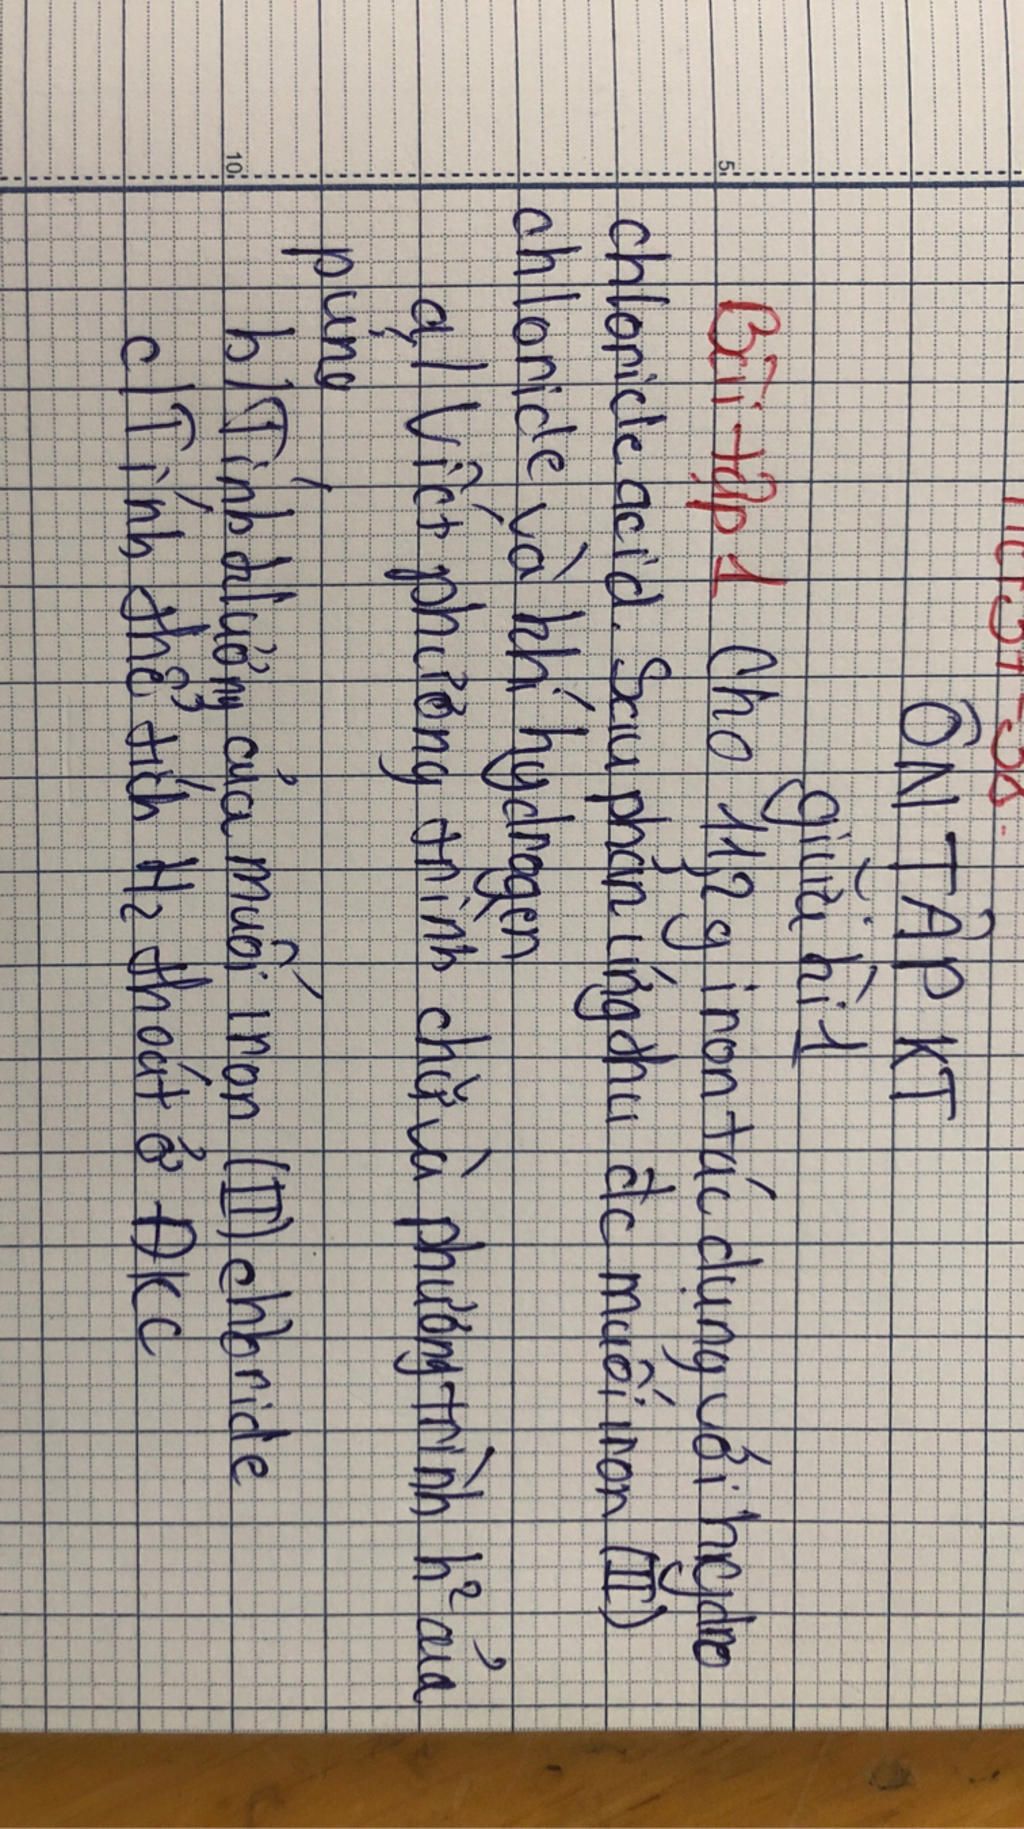 ÔN TẬP KT
giữa kì 1
5
Bài tập 1 Cho 11,2 g iron tác dụng với hydro
chloride acid. Sau phản ứng thu đc muối iron (II)
chloride và khí hydrogen
a/ Viết phương trình chữ và phương trình h² của
pứng
10
b/ Tính k/lượng của muối iron (II) chloride
c/ Tính thể tích H₂ thoát ở ĐKC